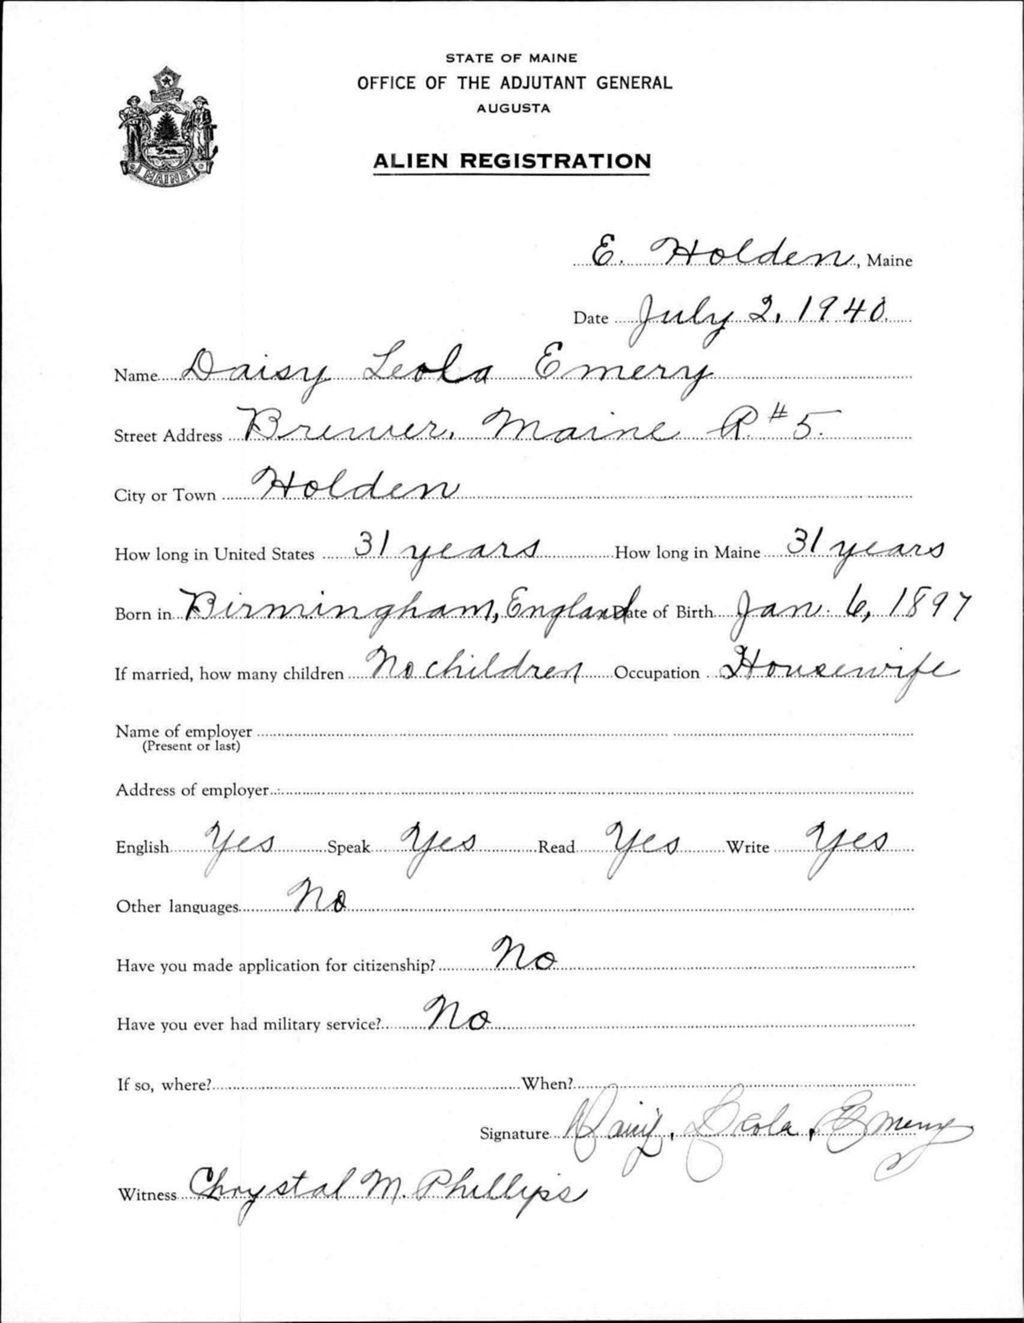 STATE OF MAINE
OFFICE OF THE ADJUTANT GENERAL
AUGUSTA
ALIEN REGISTRATION
MAINE
E. Holden, Maine
Date July 2, 1940
Name Daisy Leola Emery
Street Address Brewer, Maine R. #5.
City or Town Holden
How long in United States 31 years How long in Maine 31 years
Born in Birmingham, England Date of Birth Jan. 6, 1897
If married, how many children No children Occupation Housewife
Name of employer
(Present or last)
Address of employer
English Yes Speak Yes Read Yes Write Yes
Other languages No
Have you made application for citizenship? No
Have you ever had military service? No
If so, where? When?
Signature Daisy, Leola, Emery
Witness Chrystal M. Phillips